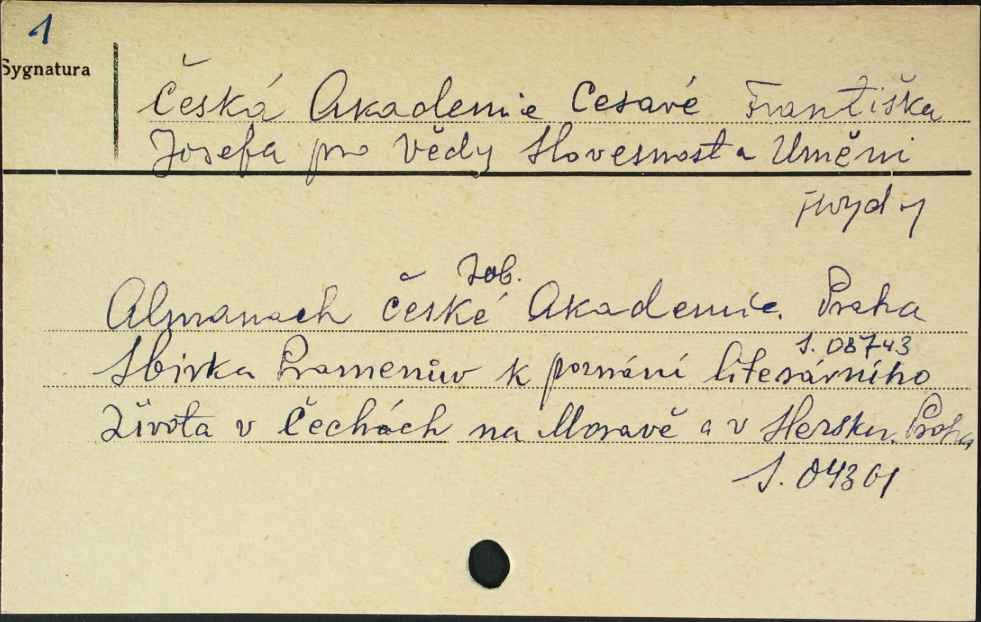 1
Sygnatura
Česká Akademie Cesavé Františka
Josefa pro Vědy Slovesnost a Uměni
wyd
Zob.
Almanach České Akademie. Praha
S. 08743
Sbirka Prameniw k poznání literárního
života v Čechách na Moravě a v Slezsku. Praha
S. 04301